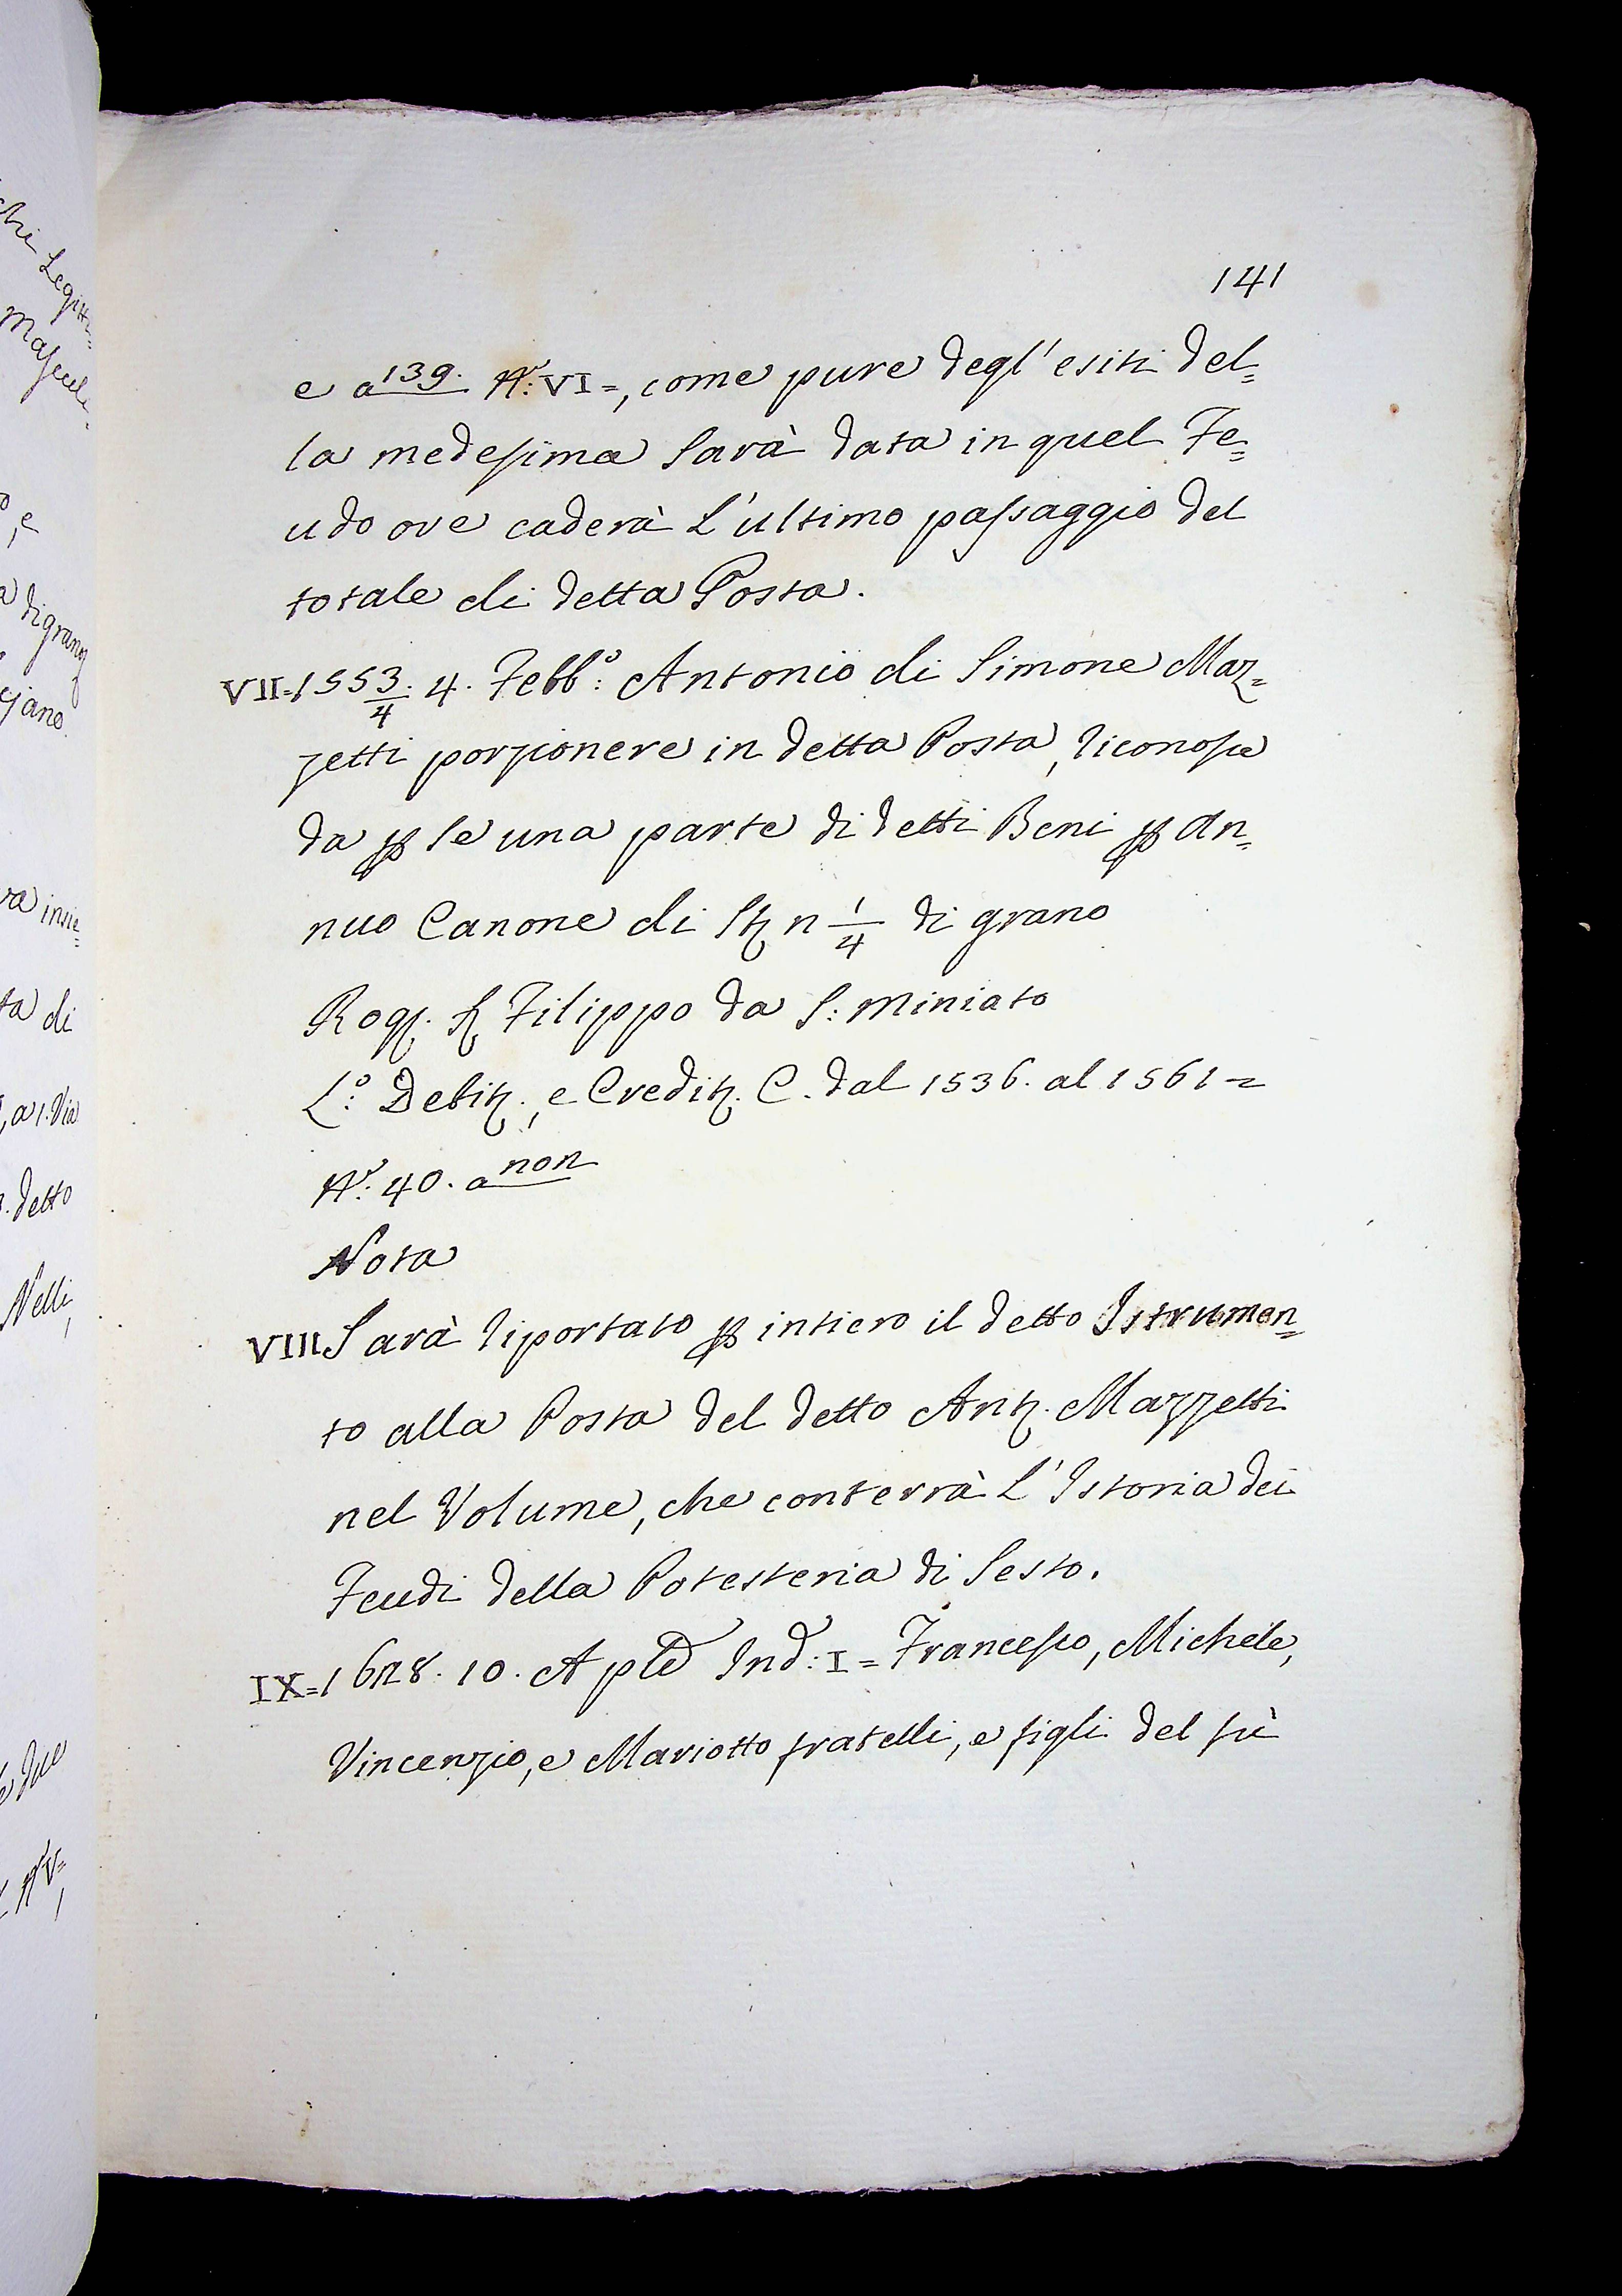 141
e a 139. N.º VI=, come pure degl'esiti del=
la medesima sarà data in quel Fe=
udo ove caderà L'ultimo passaggio del
totale di detta Posta.
VII=1553/4. 4. Febb.º: Antonio di Simone Maz=
zetti porzionere in detta Posta, riconosce
da p se una parte di detti Beni p An=
nuo Canone di St n 1/4 di grano
Rog. S. Filippo da S: Miniato
L.º: Debit., e Credit. C. dal 1536. al 1561=
N.º: 40. a non
Nota
VIII Sarà riportato p intiero il detto Istrumen=
to alla Posta del detto Ant. Mazzetti
nel Volume, che conterrà L'Istoria dei
Feudi della Potesteria di Sesto.
IX=1628. 10. Aple Ind: I= Francesco, Michele,
Vincenzio, e Mariotto fratelli, e figli del fù
chi Legitt=
Mascul=
, e
di grano
jano
ra insie=
ta di
, a 1. Via
. detto
Nelli,
e due
N.º V=,